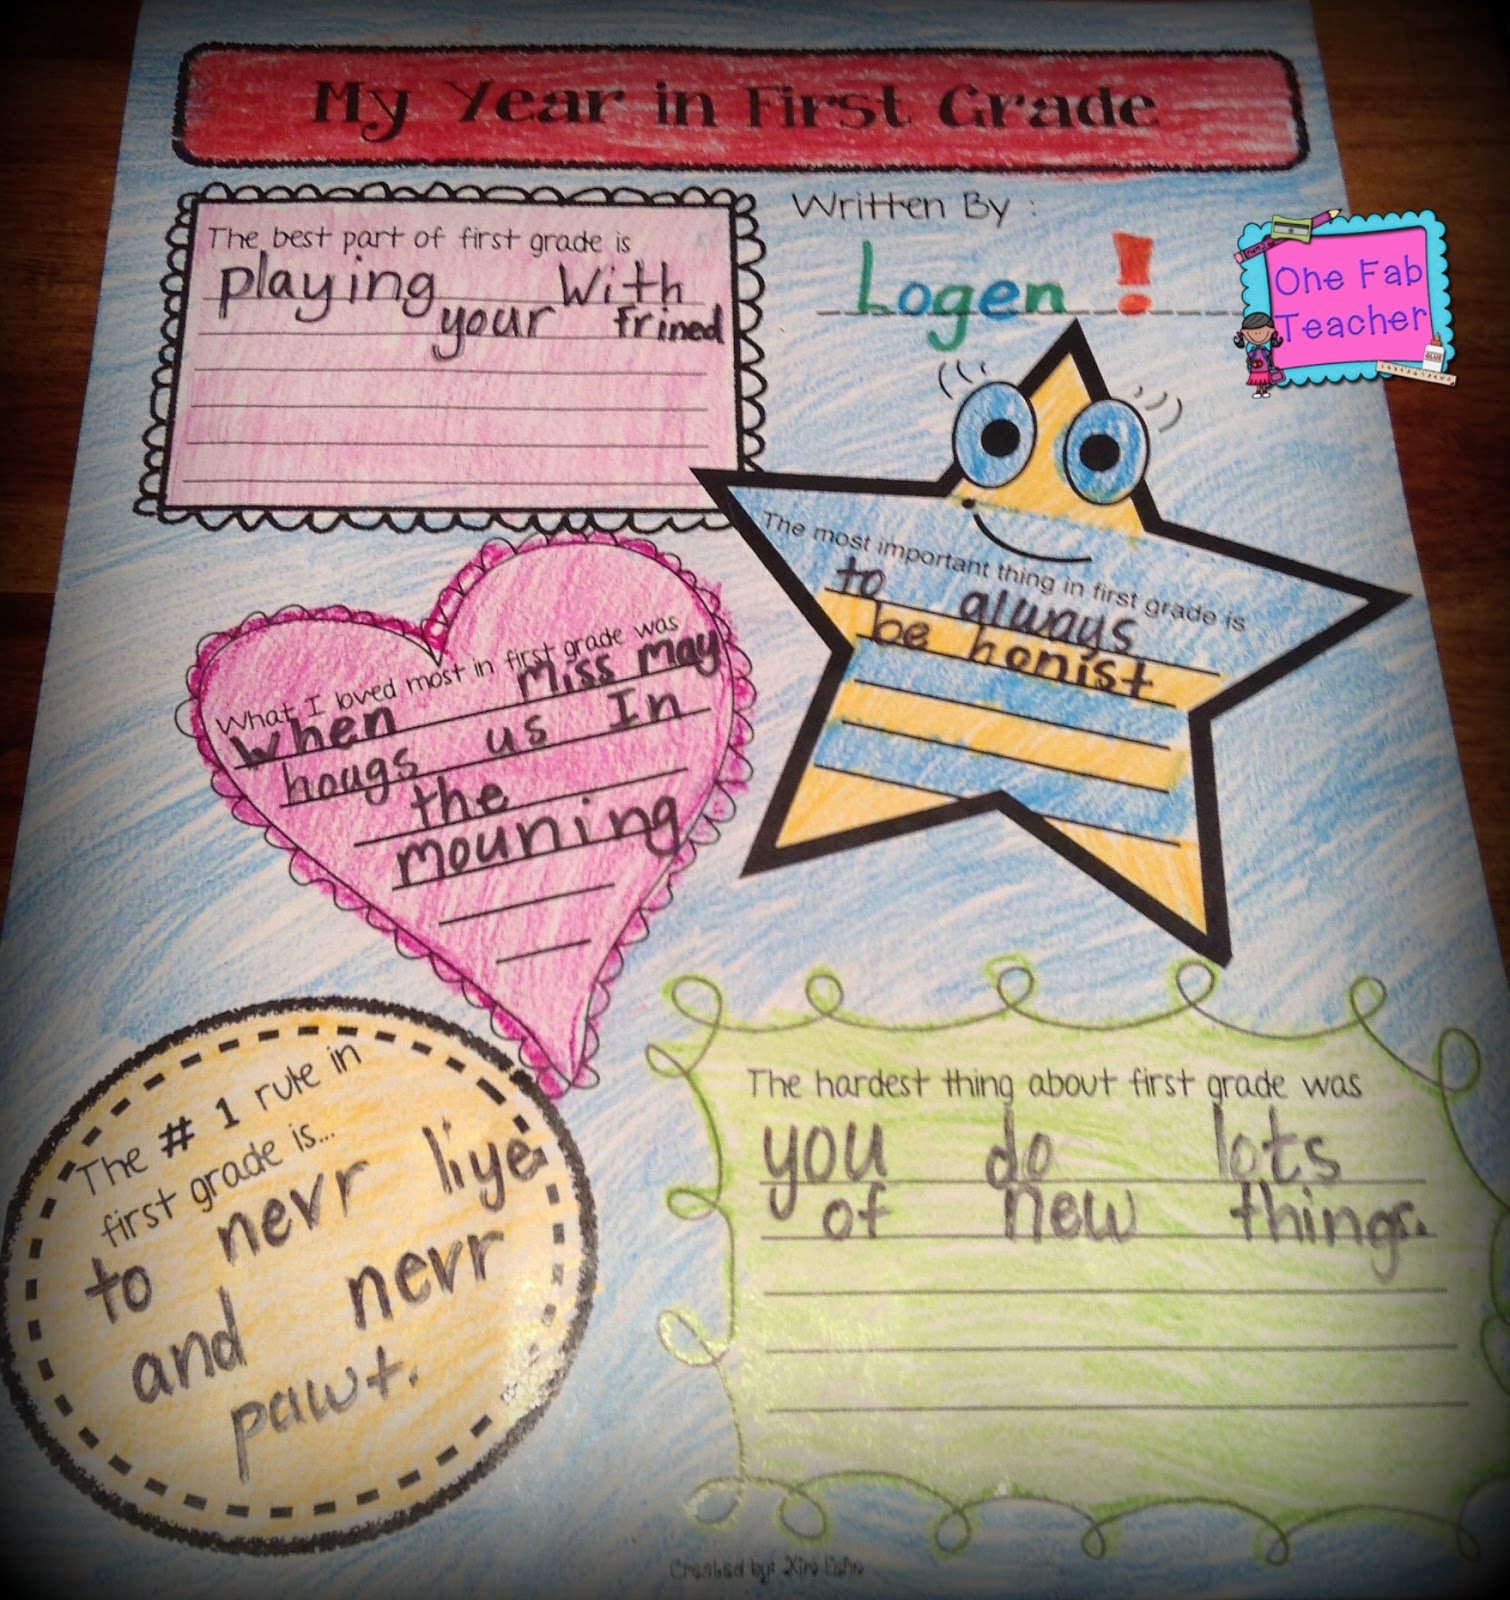 My Year in First Grade
The best part of first grade is
playing With
your frined
Written By :
Logen !
One Fab
Teacher
The most important thing in first grade is
to always
be honist
What I loved most in first grade was
when Miss May
hougs us In
the
mouning
The # 1 rule in
first grade is...
to nevr liye
and nevr
pawt.
The hardest thing about first grade was
you do lots
of new things.
Created by: